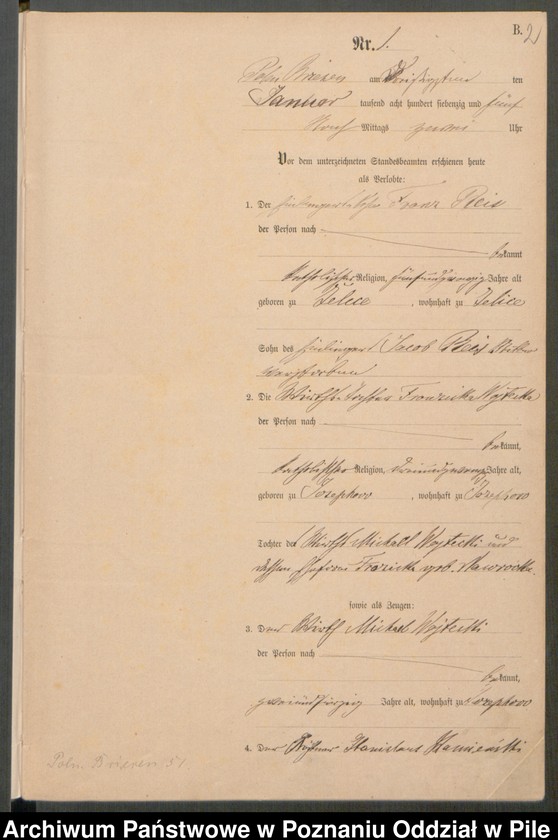 B. 2
Nr. 1.
Poln. Briesen am dreißigsten ten
Januar tausend acht hundert siebenzig und fünf
Nach Mittags zwei Uhr
Vor dem unterzeichneten Standesbeamten erschienen heute
als Verlobte:
1. Der Franz Reis
der Person nach
bekannt
katholischer Religion, fünfundzwanzig Jahre alt
geboren zu Zelice, wohnhaft zu Zelice
Sohn des Jacob Reis
verstorben
2. Die Wirthstochter Franziska Wojtecka
der Person nach
bekannt,
katholischer Religion, Jahre alt,
geboren zu Josephowo, wohnhaft zu Josephowo
Tochter des Wirths Michall Wojtecki und
dessen Ehefrau geb. Nawrocka
sowie als Zeugen:
3. Der Wirth Michall Wojtecki
der Person nach
bekannt,
zweiundvierzig Jahre alt, wohnhaft zu Josephowo
4. Der Stanislaus
Poln. Briesen 51.
Archiwum Państwowe w Poznaniu Oddział w Pile